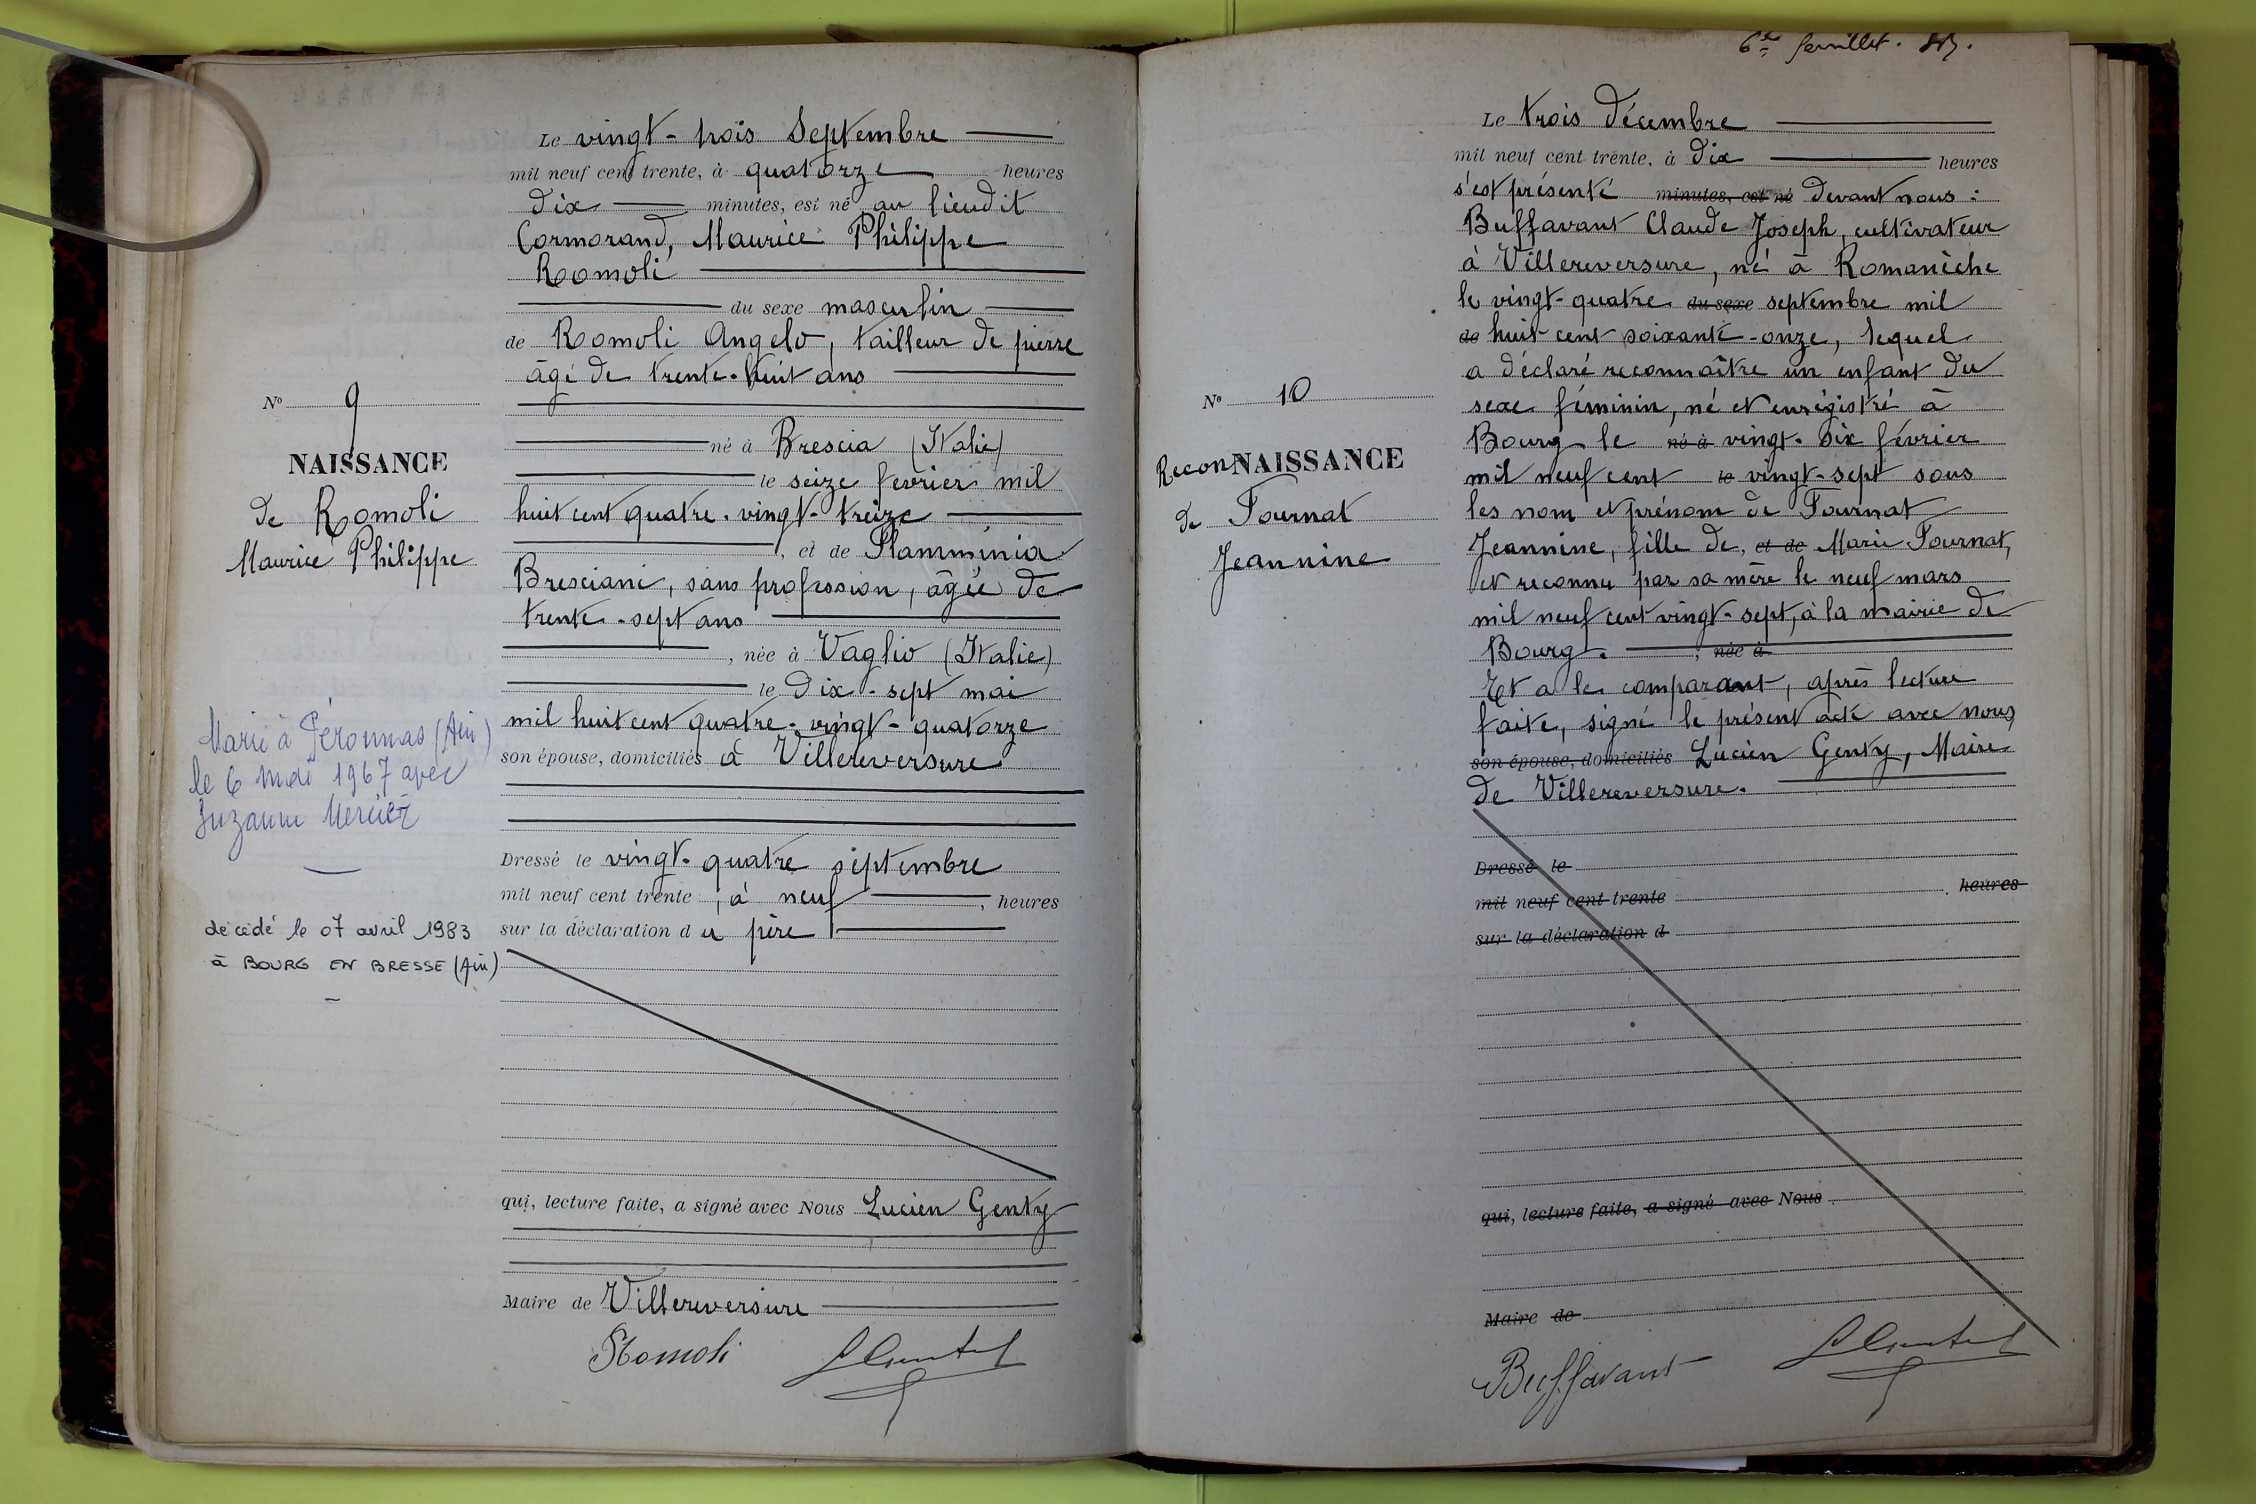 Le vingt-trois Septembre
mil neuf cent trente, à quatorze heures
dix minutes, est né au lieudit
Cormorand, Maurice Philippe
Romoli
du sexe masculin
de Romoli Angelo, tailleur de pierre
âgé de trente-huit ans
né à Brescia (Italie)
le seize fevrier mil
huit cent quatre-vingt-treize
, et de Flamminia
Bresciani, sans profession, âgée de
trente-sept ans
, née à Vaglio (Italie)
le dix-sept mai
mil huit cent quatre-vingt-quatorze
son épouse, domiciliés à Villereversure
Dressé le vingt-quatre septembre
mil neuf cent trente, à neuf, heures
sur la déclaration du père
qui, lecture faite, a signé avec Nous Lucien Genty
Maire de Villereversure
Romoli
N° 9
NAISSANCE
de Romoli
Maurice Philippe
Marié à Péronnas (Ain)
le 6 mai 1967 avec
Suzanne Mercier
décédé le 07 avril 1983
à BOURG EN BRESSE (Ain)
6e feuillet.
Le trois Décembre
mil neuf cent trente, à dix heures
s'est présenté minutes, est né devant nous :
Buffavant Claude Joseph, cultivateur
à Villereversure, né à Romanèche
le vingt-quatre du sexe septembre mil
de huit cent soixante-onze, lequel
a déclaré reconnaître un enfant du
sexe féminin, né et enregistré à
Bourg le né à vingt-six février
mil neuf cent le vingt-sept sous
les nom et prénom de Tournat
Jeannine, fille de, et de Marie Tournat,
et reconnu par sa mère le neuf mars
mil neuf cent vingt-sept, à la mairie de
Bourg. , née à
Et a le comparant, après lecture
faite, signé le présent acte avec nous
son épouse, domiciliés Lucien Genty, Maire
de Villereversure.
Dressé le
mil neuf cent trente , heures
sur la déclaration d
qui, lecture faite, a signé avec Nous
Maire de
Buffavant
N° 10
ReconNAISSANCE
de Tournat
Jeannine